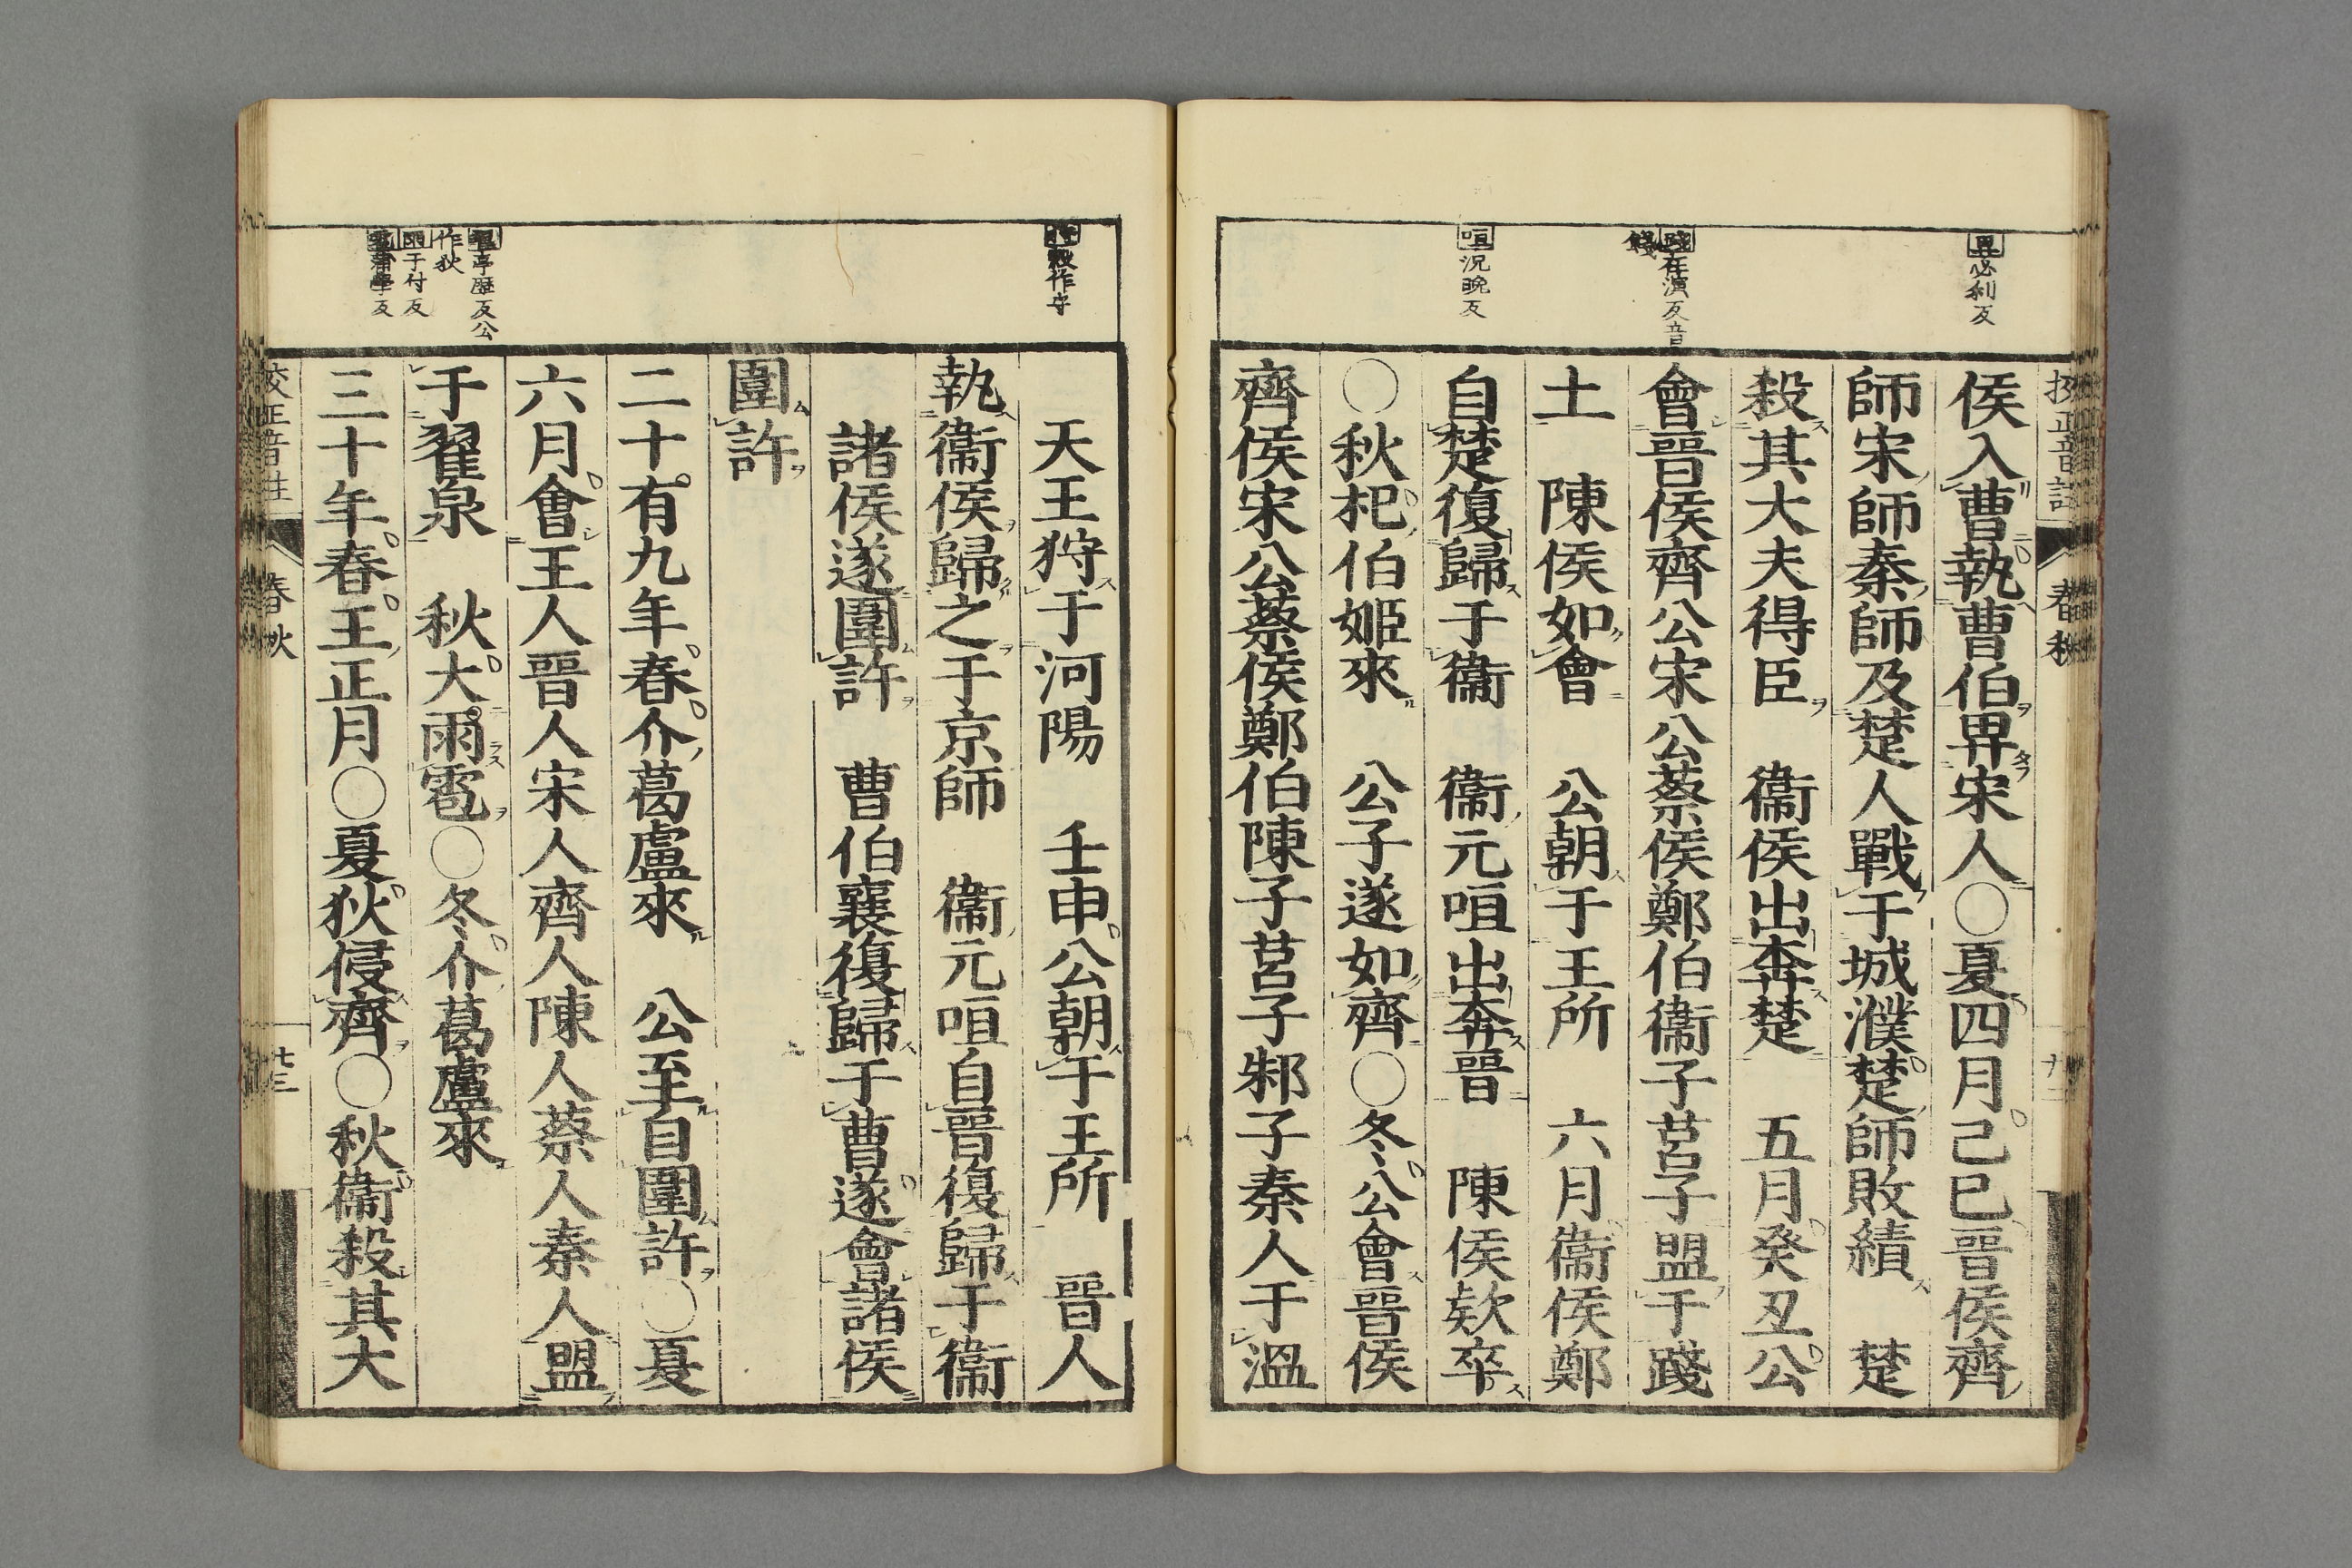 畀必利反
踐在演反音
錢
咺況晚反
侯入曹執曹伯畀宋人○夏四月己巳晉侯齊
師宋師秦師及楚人戰于城濮楚師敗績　楚
殺其大夫得臣　衞侯出奔楚　五月癸丑公
會晉侯齊公宋公蔡侯鄭伯衞子莒子盟于踐
土　陳侯如會　公朝于王所　六月衞侯鄭
自楚復歸于衞　衞元咺出奔晉　陳侯款卒
○秋杞伯姬來　公子遂如齊○冬公會晉侯
齊侯宋公蔡侯鄭伯陳子莒子邾子秦人于溫
狩穀作守
天王狩于河陽　壬申公朝于王所　晉人
執衞侯歸之于京師　衞元咺自晉復歸于衞
諸侯遂圍許　曹伯襄復歸于曹遂會諸侯
圍許
二十有九年春介葛盧來　公至自圍許○夏
六月會王人晉人宋人齊人陳人蔡人秦人盟
于翟泉　秋大雨雹○冬介葛盧來
三十年春王正月○夏狄侵齊○秋衞殺其大
翟亭歷反公
作狄
雨于付反
雹蒲學反
校正音註
春秋